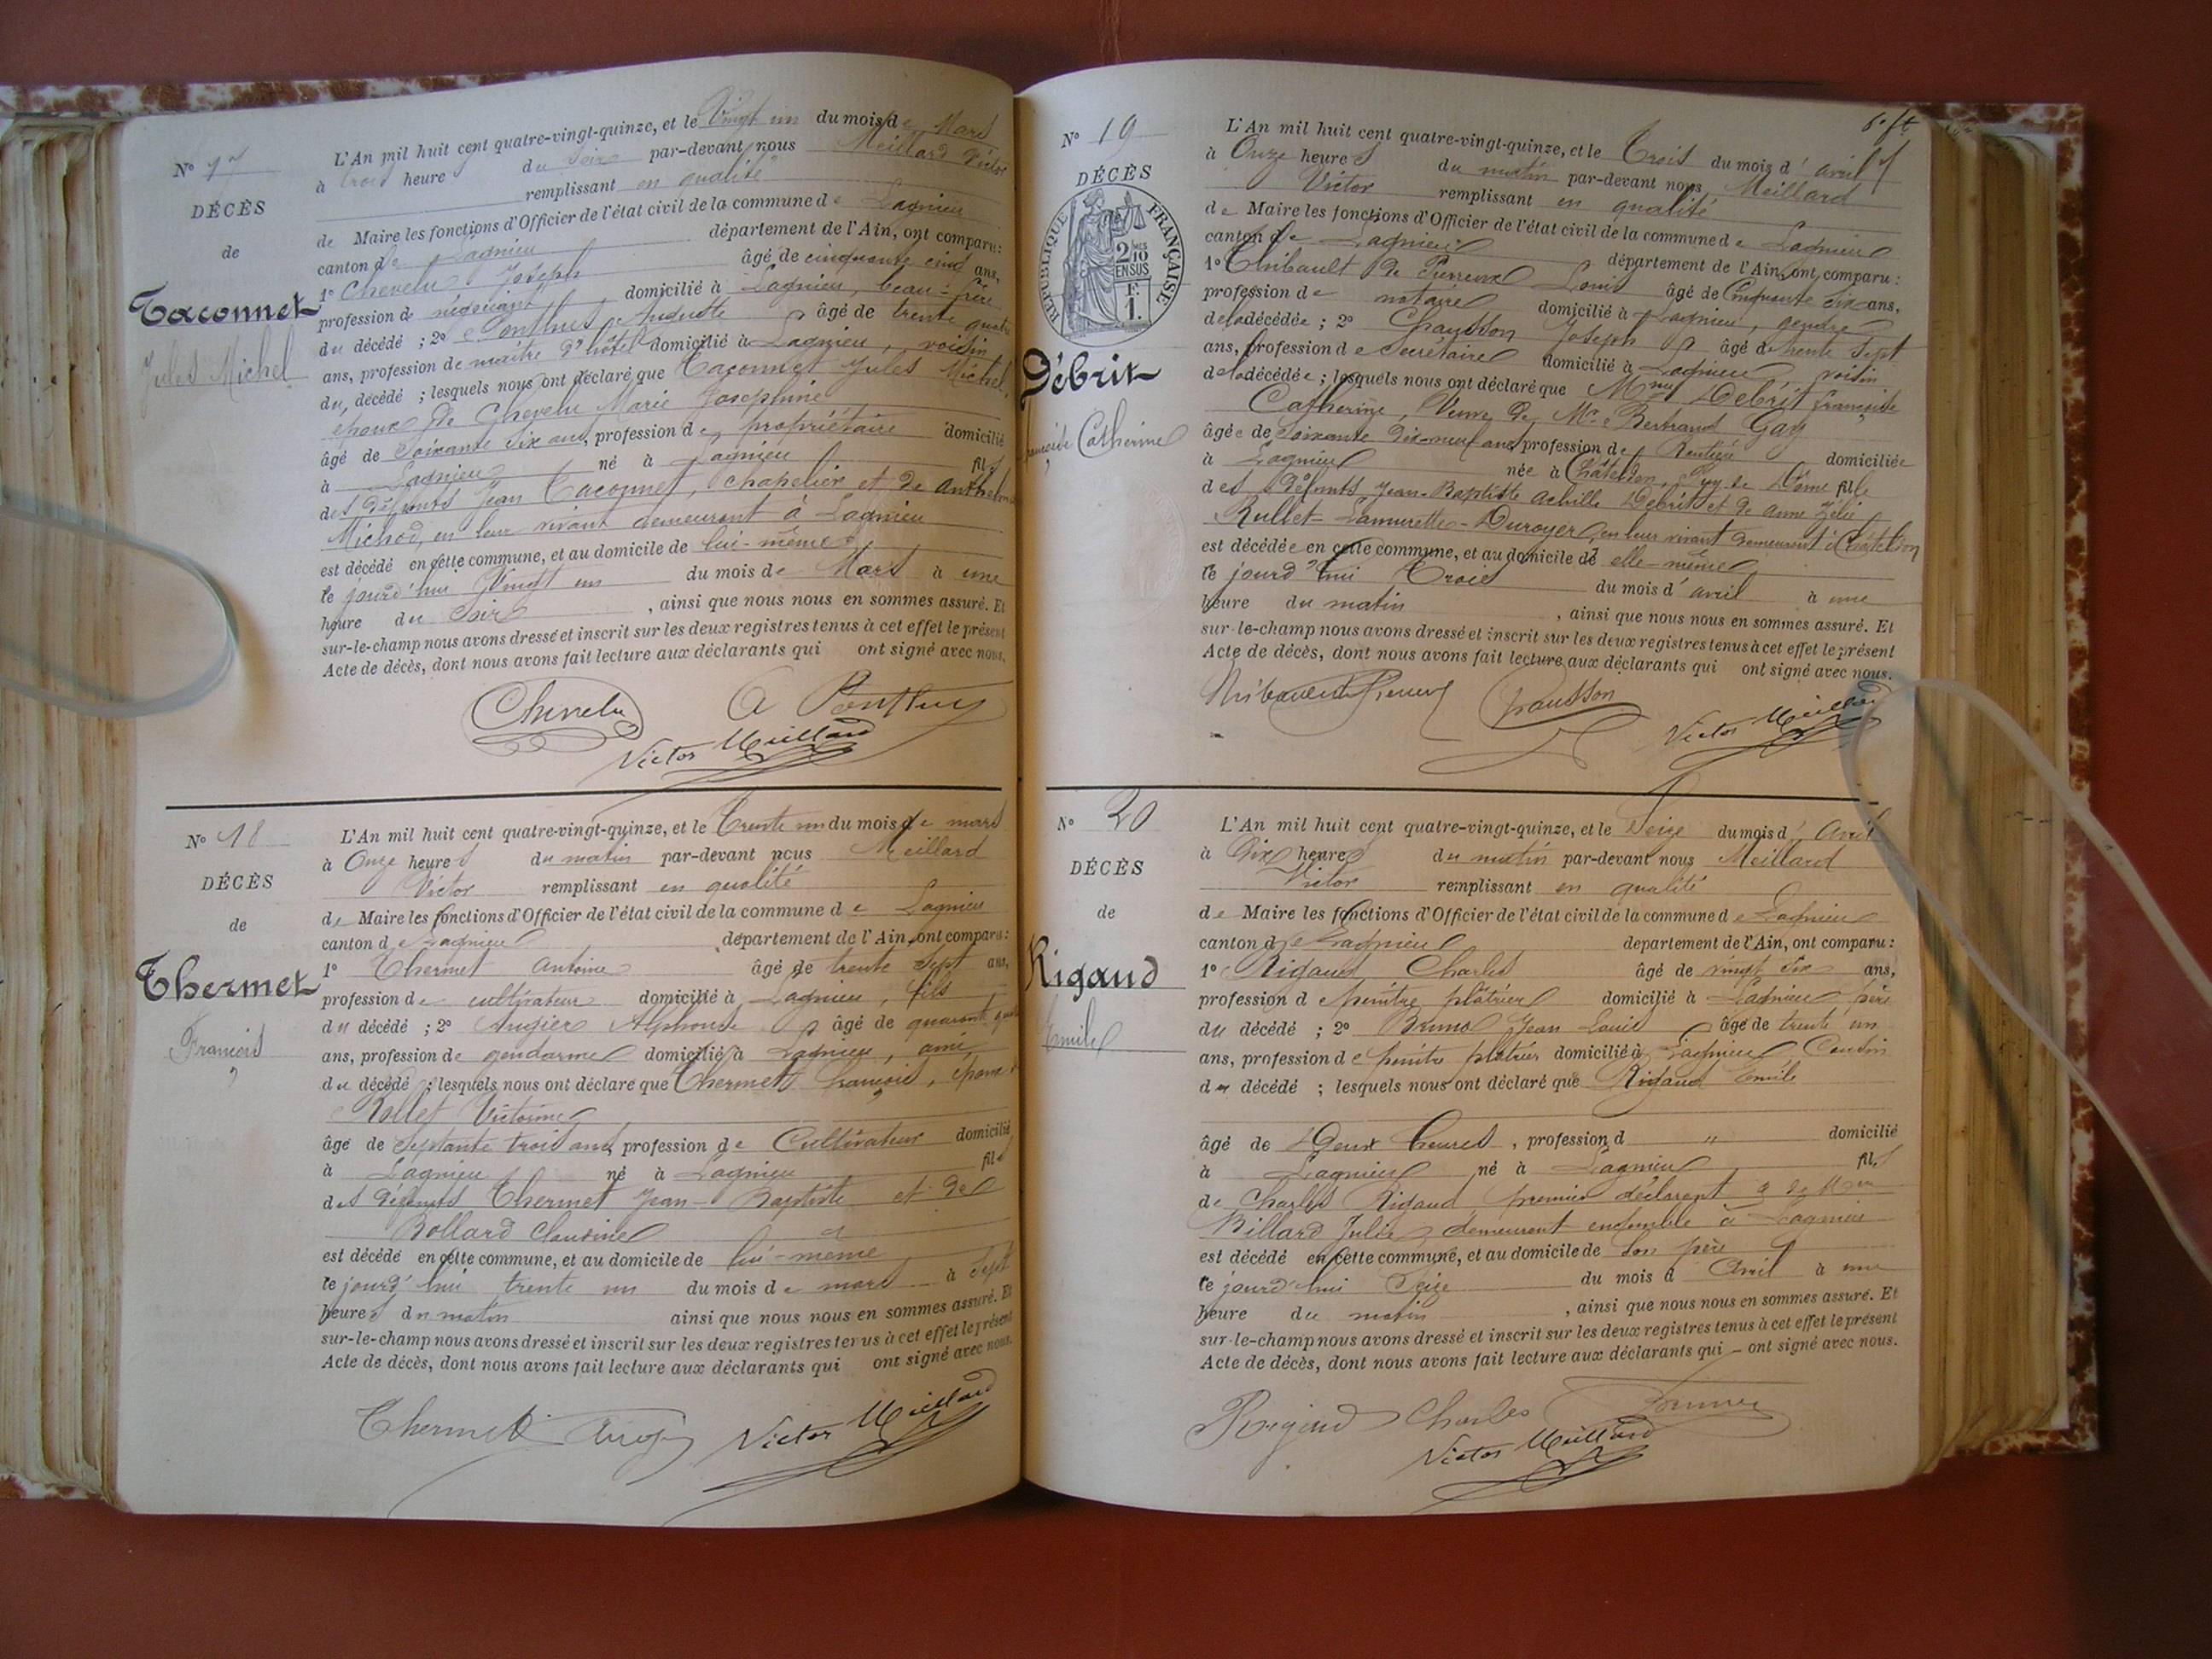 N° 17
DÉCÈS
de
Taconnet
Jules Michel
L'An mil huit cent quatre-vingt-quinze, et le Vingt un du mois de Mars
à trois heures du soir par-devant nous Meillard Victor
remplissant en qualité
de Maire les fonctions d'Officier de l'état civil de la commune de Lagnieu
canton de Lagnieu département de l'Ain, ont comparu:
1° Chevelu Joseph âgé de cinquante cinq ans,
profession de négociant domicilié à Lagnieu, beau-frère
du décédé ; 2° Ponthus Auguste âgé de trente quatre
ans, profession de maître d'hôtel domicilié à Lagnieu, voisin
du décédé ; lesquels nous ont déclaré que Taconnet Jules Michel,
époux de Chevelu Marie Josephine
âgé de soixante six ans, profession de propriétaire domicilié
à Lagnieu né à Lagnieu fils
des défunts Jean Taconnet, chapelier et de Anthelmette
Michod, en leur vivant demeurant à Lagnieu
est décédé en cette commune, et au domicile de lui-même
le jourd'hui Vingt un du mois de Mars à une
heure du soir , ainsi que nous nous en sommes assuré. Et
sur-le-champ nous avons dressé et inscrit sur les deux registres tenus à cet effet le présent
Acte de décès, dont nous avons fait lecture aux déclarants qui ont signé avec nous.
Chevelu A Ponthus
Victor Meillard
N° 18
DÉCÈS
de
Thermet
François
L'An mil huit cent quatre-vingt-quinze, et le Trente un du mois de mars
à Onze heures du matin par-devant nous Meillard
Victor remplissant en qualité
de Maire les fonctions d'Officier de l'état civil de la commune de Lagnieu
canton de Lagnieu département de l'Ain, ont comparu:
1° Thermet Antoine âgé de trente sept ans,
profession de cultivateur domicilié à Lagnieu, fils
du décédé ; 2° Augier Alphonse âgé de quarante quatre
ans, profession de gendarme domicilié à Lagnieu, ami
du décédé ; lesquels nous ont déclaré que Thermet François, époux de
Rollet Victorine
âgé de septante trois ans, profession de Cultivateur domicilié
à Lagnieu né à Lagnieu fils
des défunts Thermet Jean-Baptiste et de
Bollard Claudine
est décédé en cette commune, et au domicile de lui-même
le jourd'hui trente un du mois de mars à sept
heures du matin ainsi que nous nous en sommes assuré. Et
sur-le-champ nous avons dressé et inscrit sur les deux registres tenus à cet effet le présent
Acte de décès, dont nous avons fait lecture aux déclarants qui ont signé avec nous.
Thermet Augier Victor Meillard
N° 19
DÉCÈS
RÉPUBLIQUE FRANÇAISE
2/10 EN SUS
F. 1.
Débrit
Françoise Catherine
L'An mil huit cent quatre-vingt-quinze, et le Trois du mois d'avril
à Onze heures du matin par-devant nous Meillard
Victor remplissant en qualité
de Maire les fonctions d'Officier de l'état civil de la commune de Lagnieu
canton de Lagnieu département de l'Ain, ont comparu:
1° Thibault de Pierreux Louis âgé de Cinquante six ans,
profession de notaire domicilié à Lagnieu, gendre
de la décédée ; 2° Chausson Joseph âgé de trente sept
ans, profession de Secrétaire domicilié à Lagnieu voisin
de la décédée ; lesquels nous ont déclaré que Mme Débrit Françoise
Catherine, Veuve de Mr Bertrand Gay
âgée de soixante dix-neuf ans, profession de Rentière domiciliée
à Lagnieu née à Châteldon, Puy de Dôme fille
des défunts Jean-Baptiste Achille Débrit et de Anne Zélie
Rullet-Lamurette-Duroyer en leur vivant demeurant à Châteldon
est décédée en cette commune, et au domicile de elle-même
le jourd'hui Trois du mois d'avril à une
heure du matin , ainsi que nous nous en sommes assuré. Et
sur-le-champ nous avons dressé et inscrit sur les deux registres tenus à cet effet le présent
Acte de décès, dont nous avons fait lecture aux déclarants qui ont signé avec nous.
Chausson
Victor Meillard
N° 20
DÉCÈS
de
Rigaud
Emile
L'An mil huit cent quatre-vingt-quinze, et le Seize du mois d'Avril
à Dix heures du matin par-devant nous Meillard
Victor remplissant en qualité
de Maire les fonctions d'Officier de l'état civil de la commune de Lagnieu
canton de Lagnieu département de l'Ain, ont comparu:
1° Rigaud Charles âgé de vingt six ans,
profession de peintre plâtrier domicilié à Lagnieu père
du décédé ; 2° Bruno Jean Louis âgé de trente un
ans, profession de peintre plâtrier domicilié à Lagnieu, Cousin
du décédé ; lesquels nous ont déclaré que Rigaud Emile
âgé de Deux heures, profession d " domicilié
à Lagnieu né à Lagnieu fils
de Charles Rigaud premier déclarant & de Mme
Billard Julie, demeurant ensemble à Lagnieu
est décédé en cette commune, et au domicile de son père
le jourd'hui Seize du mois d Avril à une
heure du matin , ainsi que nous nous en sommes assuré. Et
sur-le-champ nous avons dressé et inscrit sur les deux registres tenus à cet effet le présent
Acte de décès, dont nous avons fait lecture aux déclarants qui – ont signé avec nous.
Rigaud Charles Bruno
Victor Meillard